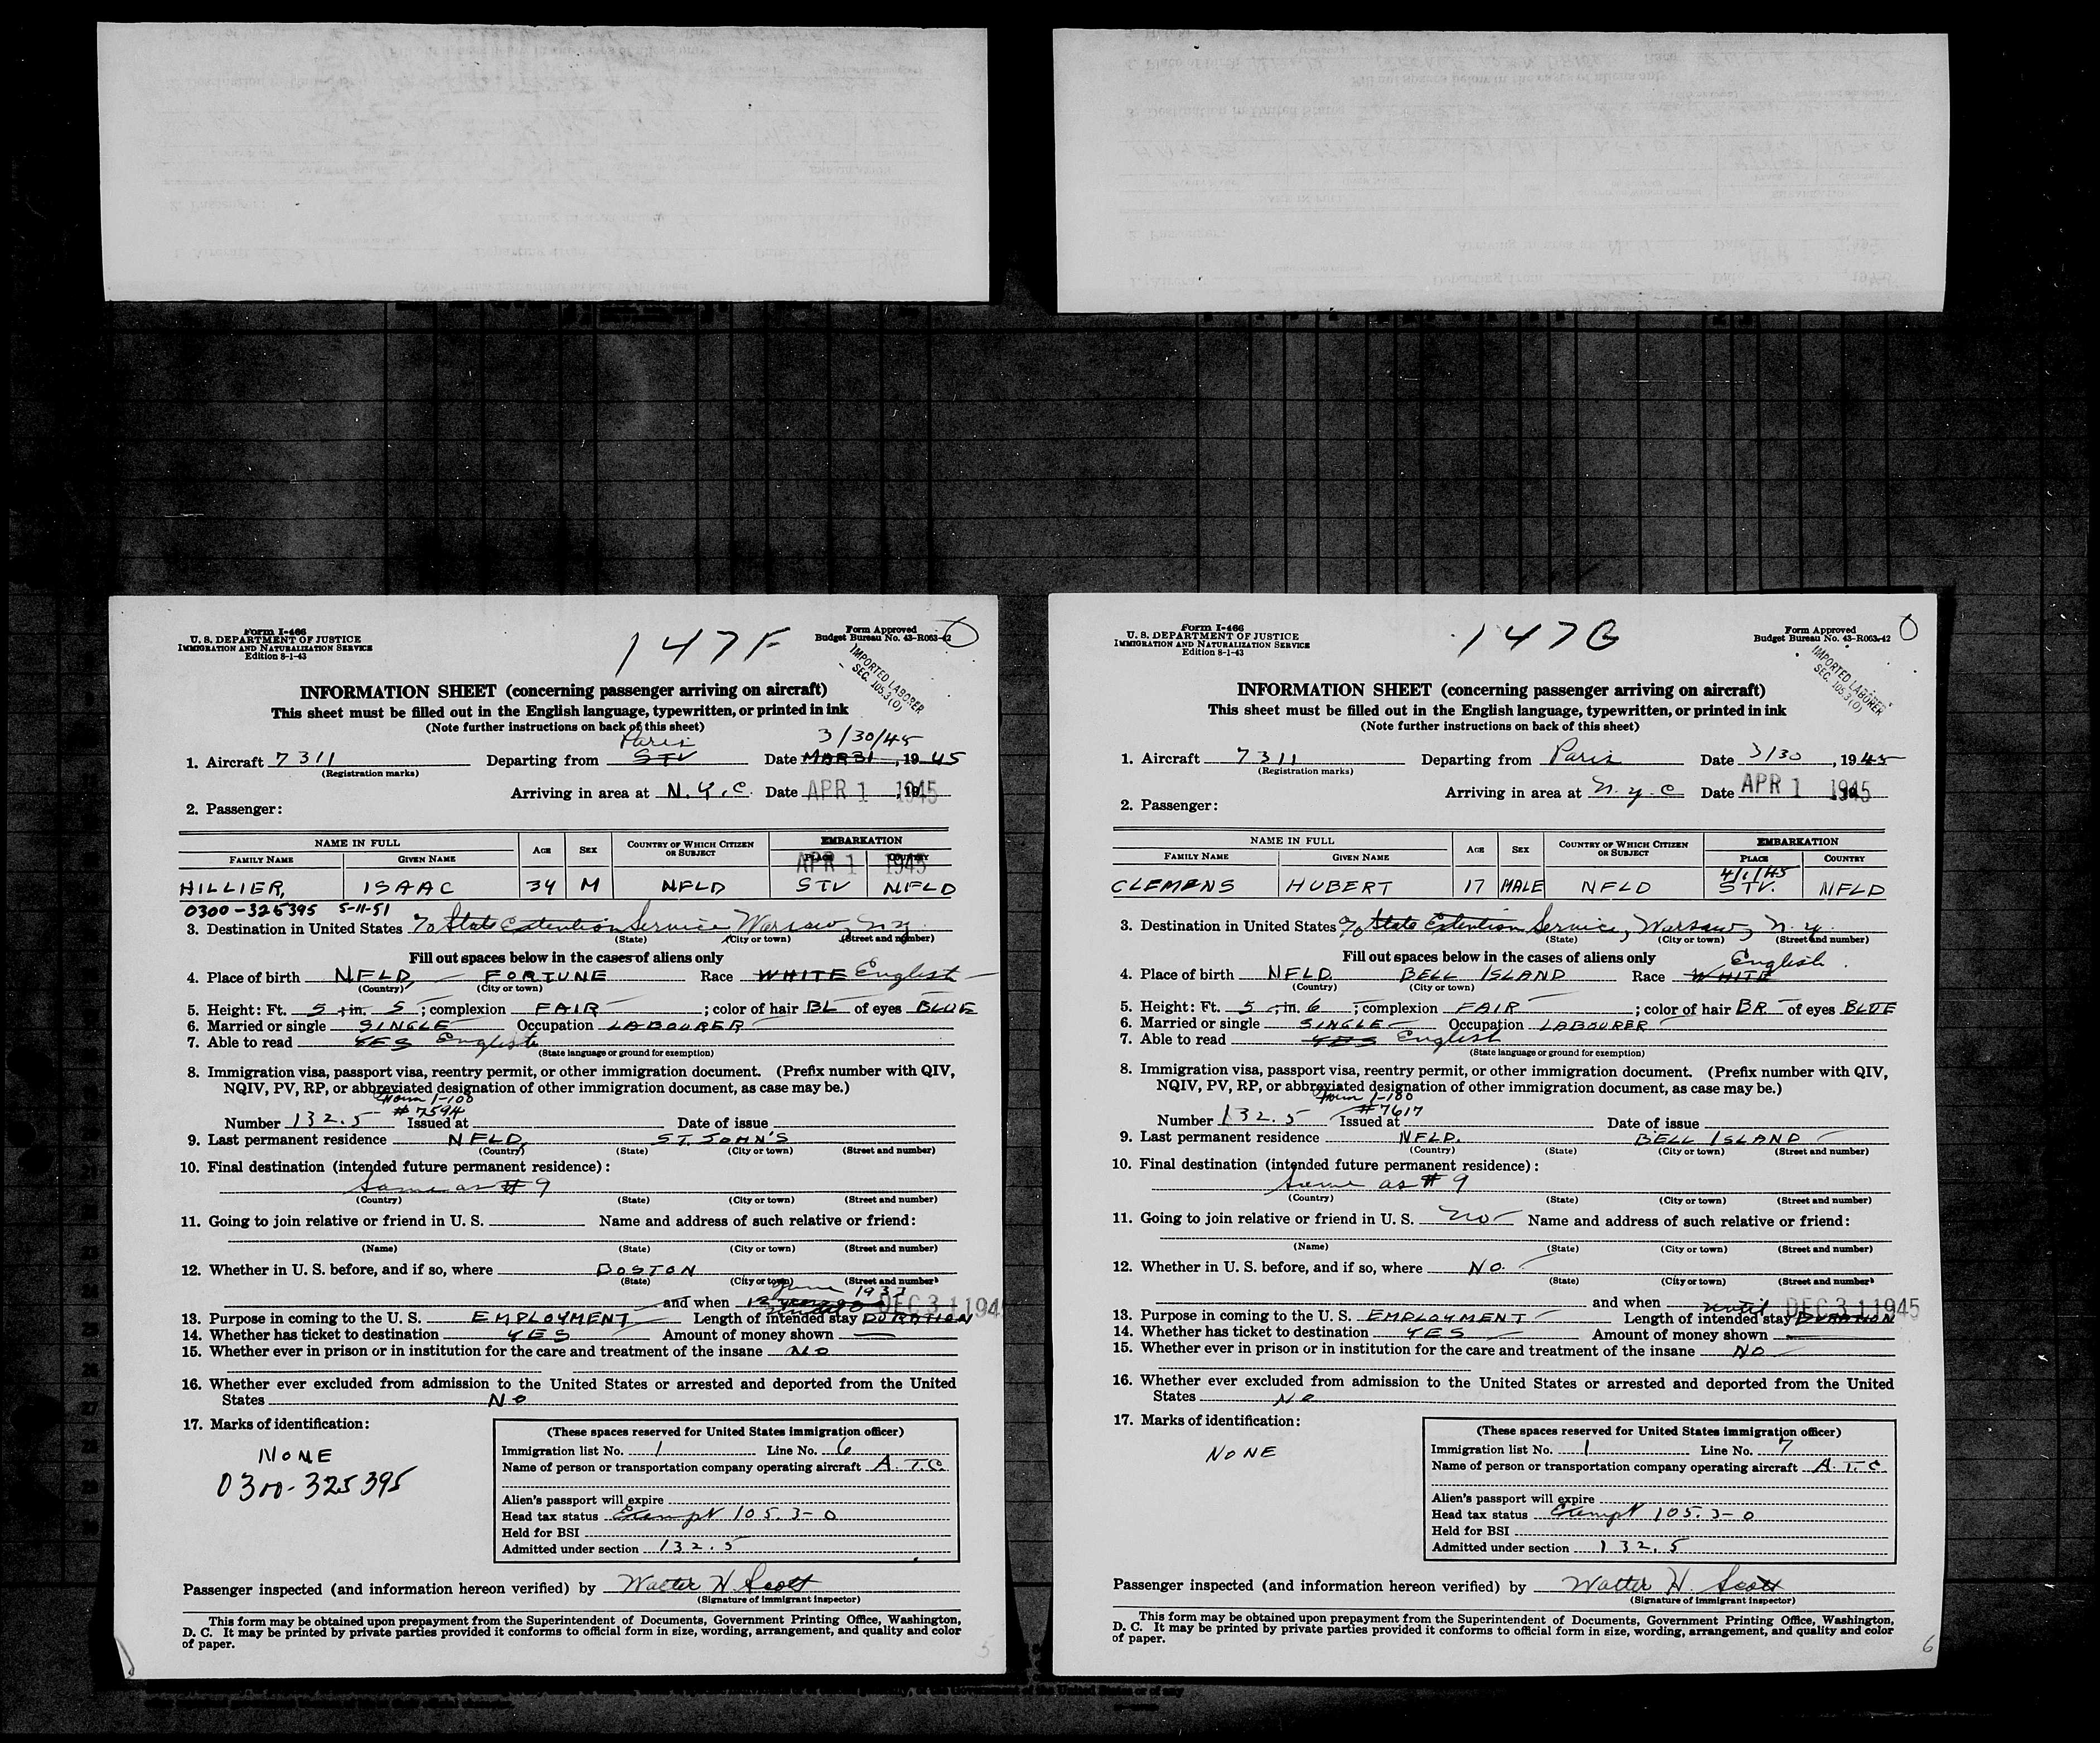 Form I-466
U. S. DEPARTMENT OF JUSTICE
IMMIGRATION AND NATURALIZATION SERVICE
Edition 8-1-43
147F
Form Approved
Budget Bureau No. 43-R063-42
IMPORTED LABORER
SEC. 105.3(0)
INFORMATION SHEET (concerning passenger arriving on aircraft)
This sheet must be filled out in the English language, typewritten, or printed in ink
(Note further instructions on back of this sheet)
Paris 3/30/45
1. Aircraft 7311 Departing from STV Date MAR 31, 1945
(Registration marks)
Arriving in area at N.Y.C. Date APR 1 1945
2. Passenger:
NAME IN FULL AGE SEX COUNTRY OF WHICH CITIZEN OR SUBJECT EMBARKATION
FAMILY NAME GIVEN NAME PLACE COUNTRY
APR 1 1945
HILLIER, ISAAC 34 M NFLD STV NFLD
0300-325395 5-11-51
3. Destination in United States % State Extention Service Warsaw, N.Y.
(State) (City or town) (Street and number)
Fill out spaces below in the cases of aliens only
4. Place of birth NFLD FORTUNE Race WHITE English
(Country) (City or town)
5. Height: Ft. 5, in. 5; complexion FAIR; color of hair BL of eyes BLUE
6. Married or single SINGLE Occupation LABOURER
7. Able to read YES English
(State language or ground for exemption)
8. Immigration visa, passport visa, reentry permit, or other immigration document. (Prefix number with QIV,
NQIV, PV, RP, or abbreviated designation of other immigration document, as case may be.)
Form I-100
#7594
Number 132.5 Issued at Date of issue
9. Last permanent residence NFLD, ST. JOHN'S
(Country) (State) (City or town) (Street and number)
10. Final destination (intended future permanent residence):
Same as #9
(Country) (State) (City or town) (Street and number)
11. Going to join relative or friend in U. S. Name and address of such relative or friend:
(Name) (State) (City or town) (Street and number)
12. Whether in U. S. before, and if so, where BOSTON
(State) (City or town) (Street and number)
and when 12 years ago
until DEC 31 1945
13. Purpose in coming to the U. S. EMPLOYMENT Length of intended stay DURATION
14. Whether has ticket to destination YES Amount of money shown
15. Whether ever in prison or in institution for the care and treatment of the insane NO
16. Whether ever excluded from admission to the United States or arrested and deported from the United
States NO
17. Marks of identification:
NONE
0300-325395
(These spaces reserved for United States immigration officer)
Immigration list No. 1 Line No. 6
Name of person or transportation company operating aircraft A.T.C.
Alien's passport will expire
Head tax status Exempt 105.3-0
Held for BSI
Admitted under section 132.5
Passenger inspected (and information hereon verified) by Walter H. Scott
(Signature of immigrant inspector)
This form may be obtained upon prepayment from the Superintendent of Documents, Government Printing Office, Washington,
D. C. It may be printed by private parties provided it conforms to official form in size, wording, arrangement, and quality and color
of paper.
5
Form I-466
U. S. DEPARTMENT OF JUSTICE
IMMIGRATION AND NATURALIZATION SERVICE
Edition 8-1-43
147G
Form Approved
Budget Bureau No. 43-R063-42
IMPORTED LABORER
SEC. 105.3(0)
INFORMATION SHEET (concerning passenger arriving on aircraft)
This sheet must be filled out in the English language, typewritten, or printed in ink
(Note further instructions on back of this sheet)
1. Aircraft 7311 Departing from Paris Date 3/30, 1945
(Registration marks)
Arriving in area at N.Y.C Date APR 1 1945
2. Passenger:
NAME IN FULL AGE SEX COUNTRY OF WHICH CITIZEN OR SUBJECT EMBARKATION
FAMILY NAME GIVEN NAME PLACE COUNTRY
4/1/45
CLEMENS HUBERT 17 MALE NFLD STV. NFLD
3. Destination in United States % State Extention Service, Warsaw, N.Y.
(State) (City or town) (Street and number)
Fill out spaces below in the cases of aliens only
English
4. Place of birth NFLD BELL ISLAND Race WHITE
(Country) (City or town)
5. Height: Ft. 5, in. 6; complexion FAIR; color of hair BR of eyes BLUE
6. Married or single SINGLE Occupation LABOURER
7. Able to read YES English
(State language or ground for exemption)
8. Immigration visa, passport visa, reentry permit, or other immigration document. (Prefix number with QIV,
NQIV, PV, RP, or abbreviated designation of other immigration document, as case may be.)
Form I-100
#7617
Number 132.5 Issued at Date of issue
9. Last permanent residence NFLD. BELL ISLAND
(Country) (State) (City or town) (Street and number)
10. Final destination (intended future permanent residence):
Same as #9
(Country) (State) (City or town) (Street and number)
11. Going to join relative or friend in U. S. no Name and address of such relative or friend:
(Name) (State) (City or town) (Street and number)
12. Whether in U. S. before, and if so, where NO.
(State) (City or town) (Street and number)
and when
until DEC 31 1945
13. Purpose in coming to the U. S. EMPLOYMENT Length of intended stay DURATION
14. Whether has ticket to destination YES Amount of money shown
15. Whether ever in prison or in institution for the care and treatment of the insane NO
16. Whether ever excluded from admission to the United States or arrested and deported from the United
States NO
17. Marks of identification:
NONE
(These spaces reserved for United States immigration officer)
Immigration list No. 1 Line No. 7
Name of person or transportation company operating aircraft A.T.C.
Alien's passport will expire
Head tax status Exempt 105.3-0
Held for BSI
Admitted under section 132.5
Passenger inspected (and information hereon verified) by Walter H. Scott
(Signature of immigrant inspector)
This form may be obtained upon prepayment from the Superintendent of Documents, Government Printing Office, Washington,
D. C. It may be printed by private parties provided it conforms to official form in size, wording, arrangement, and quality and color
of paper.
6